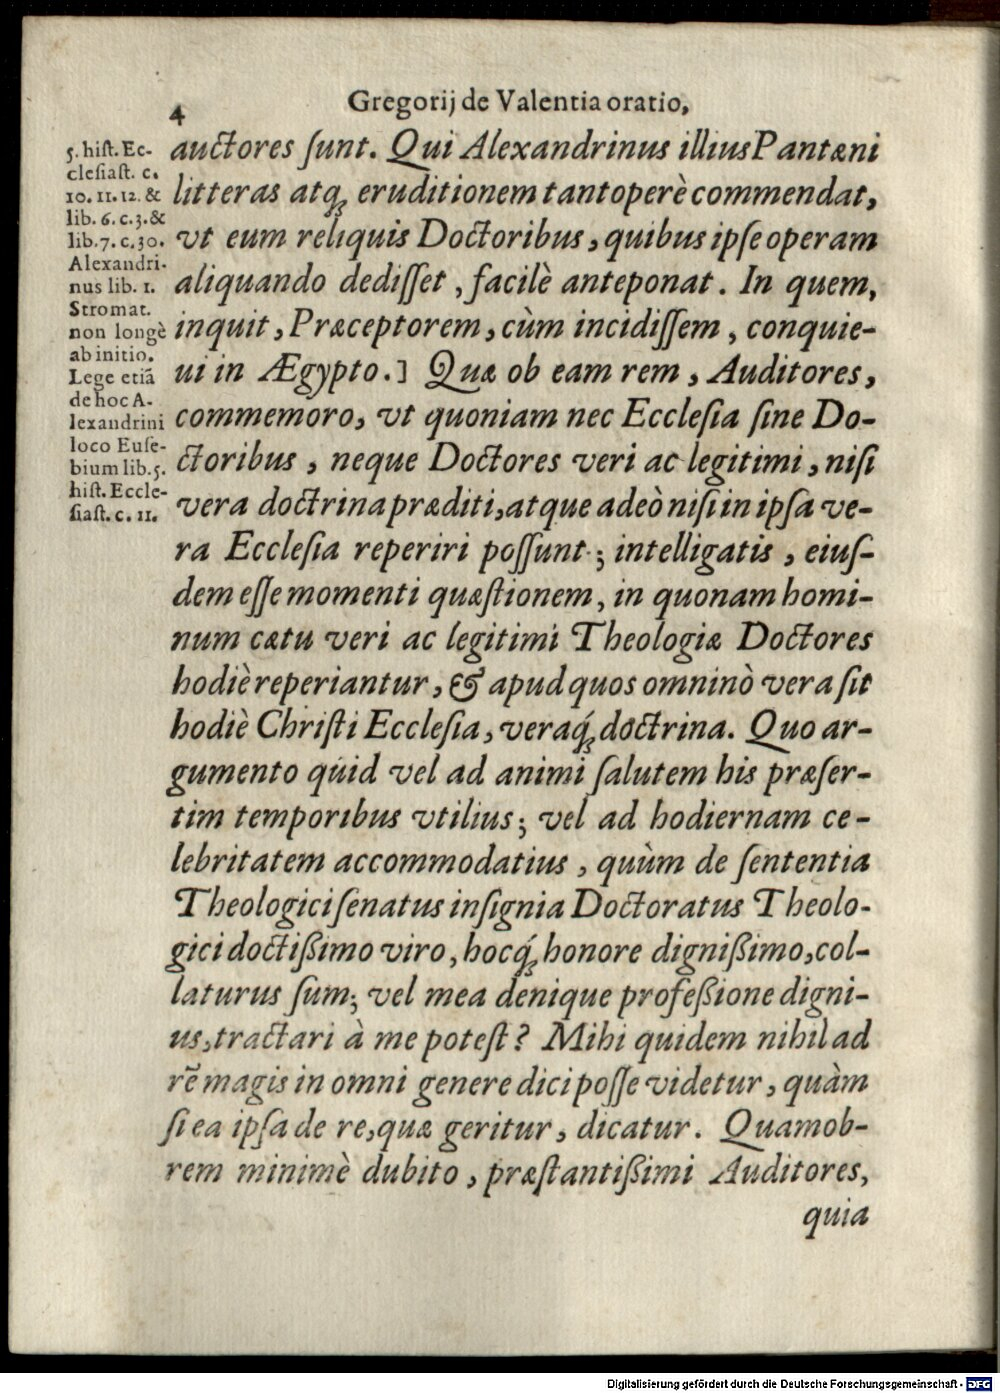 4
Gregorij de Valentia oratio,
5. hist. Ec-
clesiast. c.
10. 11. 12. &
lib. 6. c. 3. &
lib. 7. c. 30.
Alexandri-
nus lib. 1.
Stromat.
non longè
ab initio.
Lege etiã
de hoc A-
lexandrini
loco Euse-
bium lib. 5.
hist. Eccle-
siast. c. 11.
auctores ſunt. Qui Alexandrinus illius Pantæni
litteras atq́ꝫ eruditionem tantoperè commendat,
vt eum reliquis Doctoribus, quibus ipſe operam
aliquando dediſſet, facilè anteponat. In quem,
inquit, Præceptorem, cùm incidiſſem, conquie-
ui in Ægypto.] Quæ ob eam rem, Auditores,
commemoro, vt quoniam nec Eccleſia ſine Do-
ctoribus, neque Doctores veri ac legitimi, niſi
vera doctrina præditi, atque adeò niſi in ipſa ve-
ra Eccleſia reperiri poſſunt; intelligatis, eiuſ-
dem eſſe momenti quæſtionem, in quonam homi-
num cætu veri ac legitimi Theologiæ Doctores
hodiè reperiantur, & apud quos omninò vera ſit
hodiè Chriſti Eccleſia, veraq́ꝫ doctrina. Quo ar-
gumento quid vel ad animi ſalutem his præſer-
tim temporibus vtilius; vel ad hodiernam ce-
lebritatem accommodatius, quùm de ſententia
Theologici ſenatus inſignia Doctoratus Theolo-
gici doctißimo viro, hocq́ꝫ honore digniſßimo, col-
laturus ſum; vel mea denique profeßione digni-
us, tractari à me poteſt? Mihi quidem nihil ad
rẽ magis in omni genere dici poſſe videtur, quàm
ſi ea ipſa de re, quæ geritur, dicatur. Quamob-
rem minimè dubito, præſtantißimi Auditores,
quia
Digitalisierung gefördert durch die Deutsche Forschungsgemeinschaft - DFG